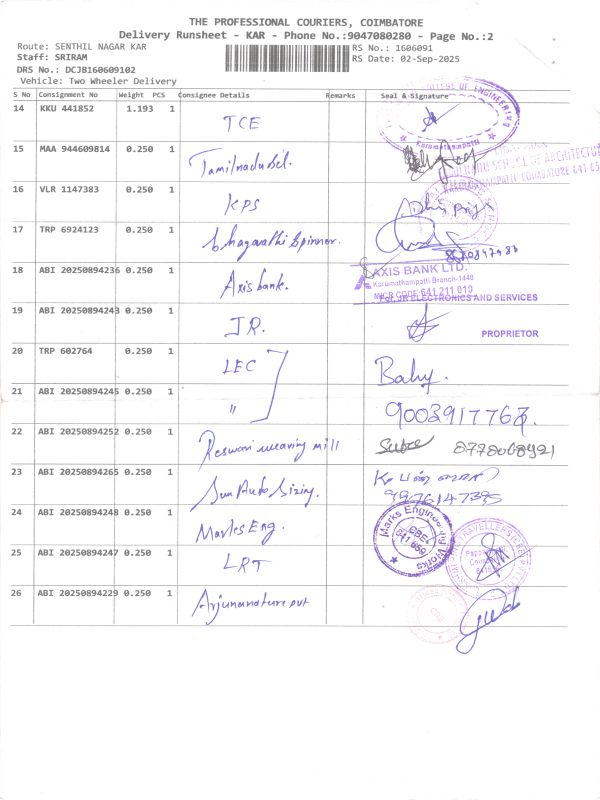 THE PROFESSIONAL COURIERS, COIMBATORE
Delivery Runsheet - KAR - Phone No.:9047080280 - Page No.:2
Route: SENTHIL NAGAR KAR
RS No.: 1606091
Staff: SRIRAM
RS Date: 02-Sep-2025
DRS No.: DCJB160609102
Vehicle: Two Wheeler Delivery
S No Consignment No Weight PCS Consignee Details Remarks Seal & Signature
14 KKU 441852 1.193 1 TCE
COLLEGE OF ENGINEERING
Karumathampatti
15 MAA 944609814 0.250 1 Tamilnadu
SCHOOL OF ARCHITECTURE
COIMBATORE 641 65
16 VLR 1147383 0.250 1 KPS
17 TRP 6924123 0.250 1 bhagavathi Spinner.
18 ABI 20250894236 0.250 1 Axis bank.
AXIS BANK LTD.
Karumathampatti Branch-1440
MICR CODE 641 211 010
19 ABI 20250894243 0.250 1 JR.
For JR ELECTRONICS AND SERVICES
PROPRIETOR
20 TRP 602764 0.250 1 LEC Baby.
21 ABI 20250894245 0.250 1 "
9003917767.
22 ABI 20250894252 0.250 1 Reswari weaving mill
23 ABI 20250894265 0.250 1 Sun Auto Sizing.
24 ABI 20250894248 0.250 1 Marks Eng.
Marks Engineering Works
25 ABI 20250894247 0.250 1 LRT
26 ABI 20250894229 0.250 1 Arjunanature pvt